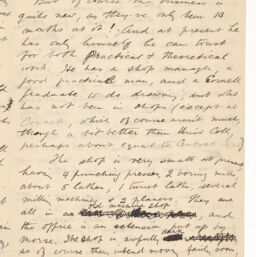 But of course the business is
quite new, as they've only been 10
months at it! And at present he
has only himself he can trust
for both Practical & Theoretical
work. He has a shop manager, a
good practical man, and a Cornell
graduate to do drawing, but who
has not been in shops (except at
Cornell, which of course aren't much,
though a bit better than their Coll,
perhaps about equal to Central
The shop is very small at present,
having 4 punching presses, 2 boring mills,
about 5 lathes, 1 turret lathe, several
milling machines & 2 planers. They are
all in an old machine shop, and
the office is an extension put up by
Morse. The shop is awfully dark
so of course they intend moving fairly soon